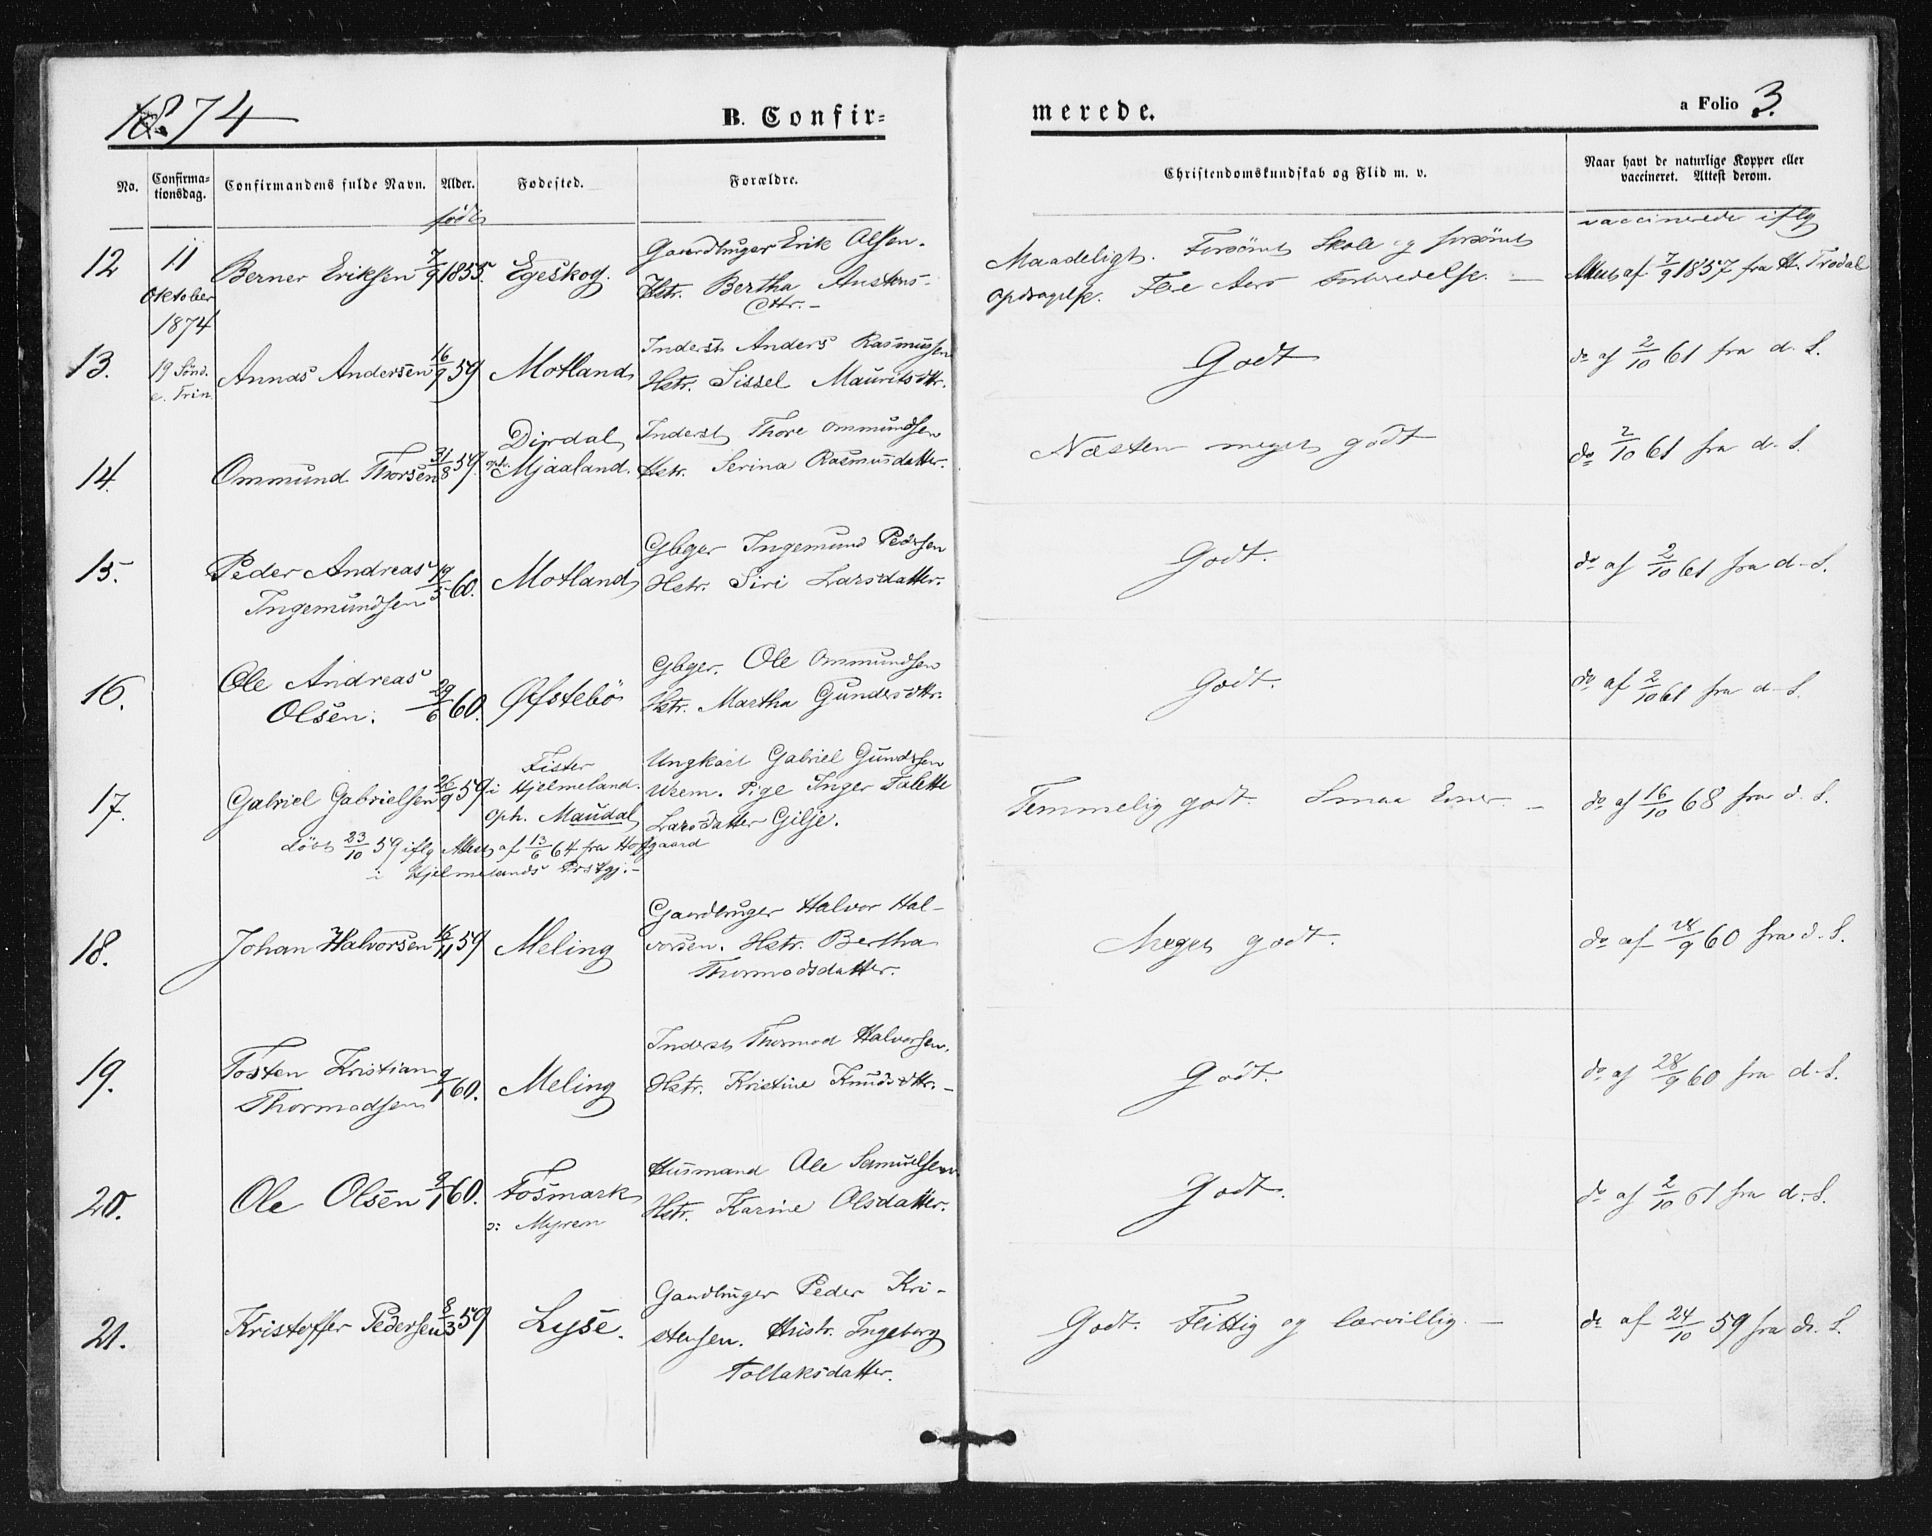 1874
B. Confir=
merede.
a Folio 3.
No.
Confirma-
tionsdag.
Confirmandens fulde Navn.
Alder.
Fødested.
Forældre.
Christendomskundskab og Flid m. v.
Naar havt de naturlige Kopper eller
vaccineret. Attest derom.
født
vaccinerede iflg
12
11
Oktober
1874
Berner Eriksen
7/9 1855.
Egeskog.
Gaardbruger Erik Olsen.
Hstr. Bertha Austens-
dttr.-
Maadeligt. Forsømt Skole og forsømt
Opdragelse. Flere Aars Forberedelse. —
Attest af 7/9 1857 fra H. Trodal
13.
19 Sønd.
e. Trin.
Annas Andersen
16/9 59
Motland
Inderst Anders Rasmussen
Hstr. Sissel Mauritsdttr.
Godt
do af 2/10 61 fra d. S.
14.
Ommund Thorsen
31/8 59.
Dirdal
oph. Mjaaland.
Inderst Thore Ommundsen
Hstr. Serina Rasmusdatter.
Næsten meget godt
do 2/10 61 fra d. S.
15.
Peder Andreas
Ingemundsen
19/5 60.
Motland
Gbger Ingemund Pedersen
Hstr. Siri Larsdatter.
Godt.
do af 2/10 61 fra d. S.
16.
Ole Andreas
Olsen.
29/6 60.
Øfstebø
Gbger. Ole Ommundsen
Hstr. Martha Gundersdttr.
Godt.
do af 2/10 61 fra d. S.
17.
Gabriel Gabrielsen
26/9 59
Fister
i Hjelmeland.
oph. Maudal
Ungkarl Gabriel Gundersen
Urem. Pige Inger Talette
Larsdatter Gilje.
Temmelig godt. Smaa Evner. —
do af 16/10 68 fra d. S.
døbt 23/10 59 iflg Attest af 13/6 64 fra Hofgaard
i Hjelmelands Prstgj.-
18.
Johan Halvorsen
16/11 59
Meling
Gaardbruger Halvor Hal-
vorsen. Hstr. Bertha
Thormodsdatter.
Meget godt.
do af 28/9 60 fra d. S.
19.
Tosten Kristian
Thormodsen
9/1 60.
Meling
Inderst Thormod Halvorsen.
Hstr. Kristine Knudsdttr.-
Godt.
do af 28/9 60 fra d. S.
20.
Ole Olsen
2/1 60.
Fosmark
o: Myren
Husmand Ole Samuelsen
Hstr. Karine Olsdatter.
Godt.
do af 2/10 61 fra d. S.
21.
Kristoffer Pedersen
8/3 59
Lyse.
Gaardbruger Peder Kri-
stensen. Hustr. Ingeborg
Tollaksdatter.
Godt. Flittig og lærvillig. —
do af 24/10 59 fra d. S.